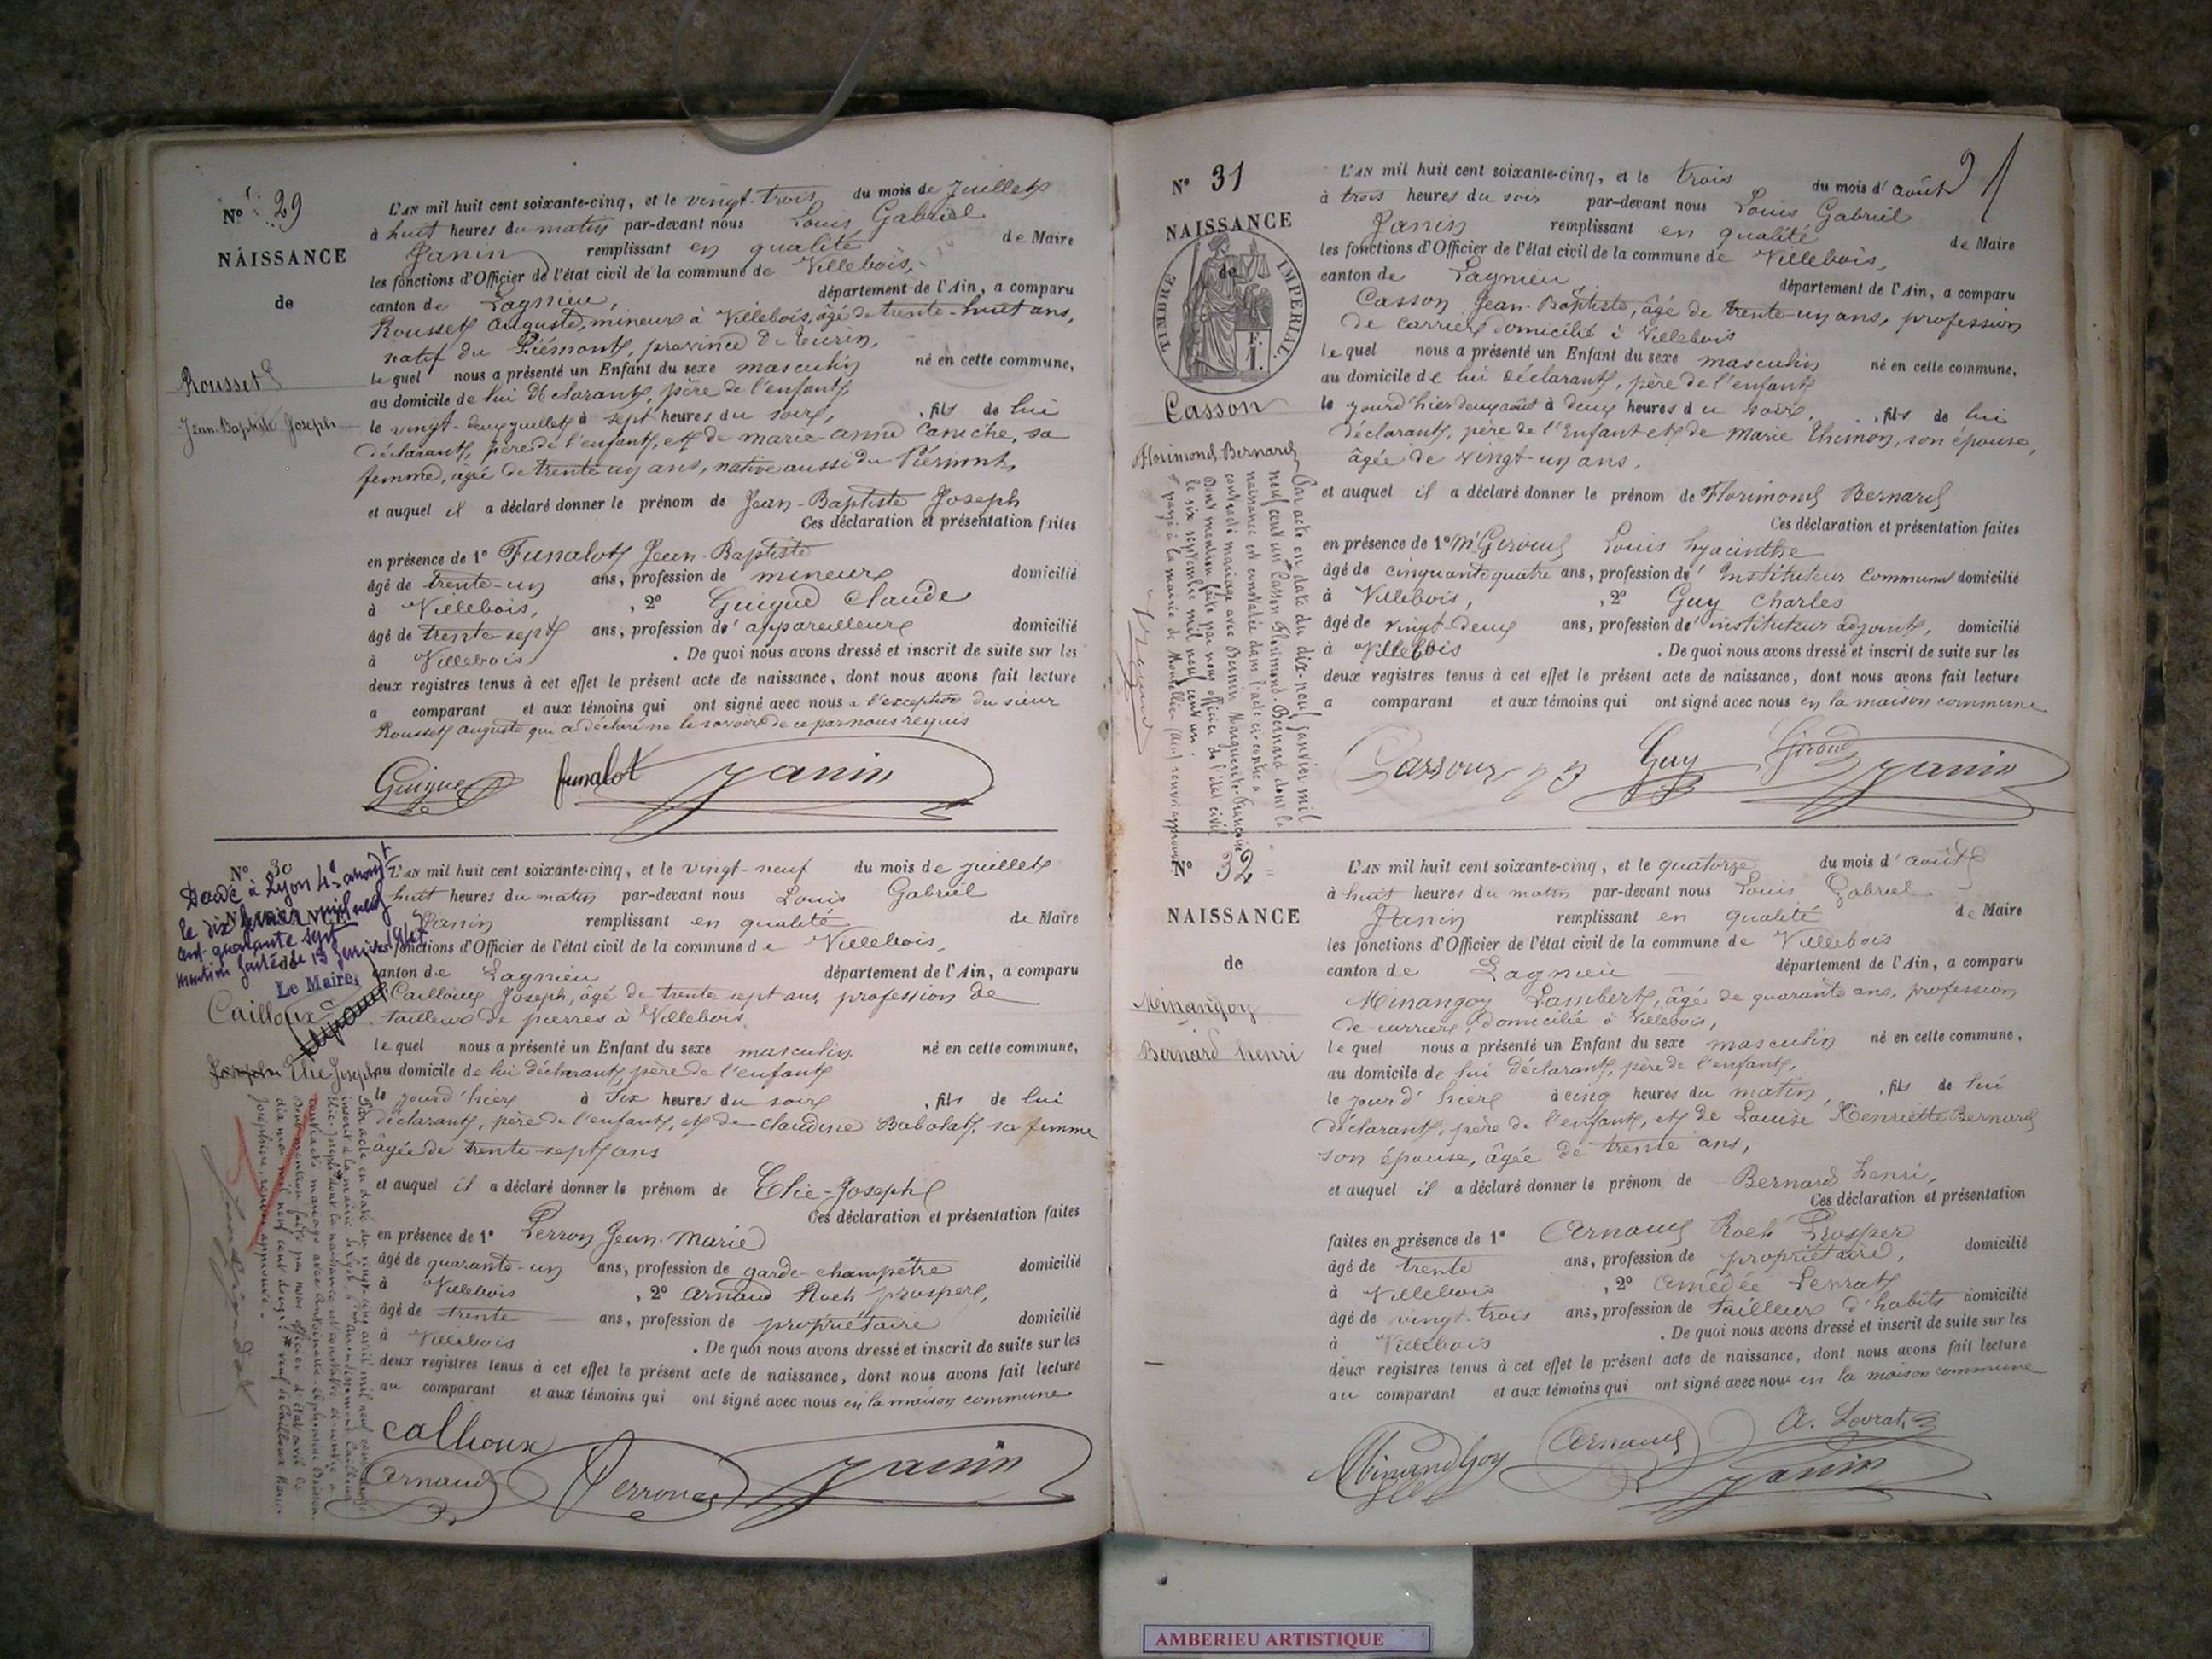 N° 29
NAISSANCE
de
Rousset
Jean-Baptiste Joseph
L'AN mil huit cent soixante-cinq, et le vingt-trois du mois de Juillet
à huit heures du matin par-devant nous Louis Gabriel
Janin remplissant en qualité de Maire
les fonctions d'Officier de l'état civil de la commune de Villebois,
canton de Lagnieu, département de l'Ain, a comparu
Rousset Auguste, mineur à Villebois, âgé de trente-huit ans,
natif du Piémont, province de Turin,
le quel nous a présenté un Enfant du sexe masculin né en cette commune,
au domicile de lui déclarant, père de l'enfant,
le vingt-deux juillet à sept heures du soir, fils de lui
déclarant, père de l'enfant, et de marie-anne Caniche, sa
femme, âgée de trente un ans, native aussi du Piémont,
et auquel il a déclaré donner le prénom de Jean-Baptiste Joseph
Ces déclaration et présentation faites
en présence de 1° Funalot Jean-Baptiste
âgé de trente-un ans, profession de mineur domicilié
à Villebois, , 2° Guigue Claude
âgé de trente-sept ans, profession d' appareilleur domicilié
à Villebois . De quoi nous avons dressé et inscrit de suite sur les
deux registres tenus à cet effet le présent acte de naissance, dont nous avons fait lecture
a comparant et aux témoins qui ont signé avec nous a l'exception du sieur
Rousset auguste qui a déclaré ne le savoir de ce par nous requis
Guigue funalot Janin
N° 30
Décédé à Lyon 4e arrondt
le dix février mil neuf
cent quarante sept
mention faite le 13 février 1947
Le Maire,
Cailloux
Elie Joseph
L'AN mil huit cent soixante-cinq, et le vingt-neuf du mois de juillet
huit heures du matin par-devant nous Louis Gabriel
Janin remplissant en qualité de Maire
les fonctions d'Officier de l'état civil de la commune de Villebois,
canton de Lagnieu département de l'Ain, a comparu
Cailloux Joseph, âgé de trente sept ans, profession de
tailleur de pierres à Villebois
le quel nous a présenté un Enfant du sexe masculin né en cette commune,
au domicile de lui déclarant, père de l'enfant
le jourd'hier à six heures du soir , fils de lui
déclarant, père de l'enfant, et de claudine Babolat, sa femme
âgée de trente-sept ans
et auquel il a déclaré donner le prénom de Elie-Joseph
Ces déclaration et présentation faites
en présence de 1° Perron Jean-Marie
âgé de quarante-un ans, profession de garde-champetre domicilié
à Villebois , 2° Arnaud Roch prosper,
âgé de trente ans, profession de propriétaire domicilié
à Villebois . De quoi nous avons dressé et inscrit de suite sur les
deux registres tenus à cet effet le présent acte de naissance, dont nous avons fait lecture
au comparant et aux témoins qui ont signé avec nous en la maison commune
Cailloux
Arnaud Perron Janin
N° 31
NAISSANCE
de
TIMBRE IMPERIAL
Casson
Florimond Bernard
Par acte en date du dix-neuf janvier mil
neuf cent un Casson Florimond Bernard dont la
naissance est constatée dans l'acte ci-contre a
contracté mariage avec Marguerite-Françoise
Dont mention faite par nous officier de l'état civil
le six septembre mil neuf cent un.
L'AN mil huit cent soixante-cinq, et le trois du mois d' août
à trois heures du soir par-devant nous Louis Gabriel
Janin remplissant en qualité de Maire
les fonctions d'Officier de l'état civil de la commune de Villebois,
canton de Lagnieu département de l'Ain, a comparu
Casson Jean-Baptiste, âgé de trente-un ans, profession
de carrier domicilié à Villebois
le quel nous a présenté un Enfant du sexe masculin né en cette commune,
au domicile de lui déclarant, père de l'enfant
le jourd'hier deux août à deux heures du soir, fils de lui
déclarant, père de l'Enfant et de Marie Thimon, son épouse,
âgée de vingt-un ans,
et auquel il a déclaré donner le prénom de Florimond Bernard
Ces déclaration et présentation faites
en présence de 1° Mr Giroud Louis hyacinthe
âgé de cinquante quatre ans, profession d' Instituteur Communal domicilié
à Villebois, , 2° Guy Charles
âgé de vingt-deux ans, profession d' instituteur adjoint, domicilié
à Villebois . De quoi nous avons dressé et inscrit de suite sur les
deux registres tenus à cet effet le présent acte de naissance, dont nous avons fait lecture
a comparant et aux témoins qui ont signé avec nous en la maison commune
Guy Giroud Janin
N° 32
NAISSANCE
de
Minangoy
Bernard henri
L'AN mil huit cent soixante-cinq, et le quatorze du mois d' août
à huit heures du matin par-devant nous Louis Gabriel
Janin remplissant en qualité de Maire
les fonctions d'Officier de l'état civil de la commune de Villebois
canton de Lagnieu département de l'Ain, a comparu
Minangoy Lambert, âgé de quarante ans, profession
de carrier, domicilié à Villebois,
le quel nous a présenté un Enfant du sexe masculin né en cette commune,
au domicile de lui déclarant, père de l'enfant,
le jour d'hier à cinq heures du matin, fils de lui
déclarant, père de l'enfant, et de Louise Henriette Bernard
son épouse, âgée de trente ans,
et auquel il a déclaré donner le prénom de Bernard henri,
Ces déclaration et présentation
faites en présence de 1° Arnaud Roch Prosper
âgé de trente ans, profession de propriétaire, domicilié
à Villebois , 2° Amédée Levrat
âgé de vingt-trois ans, profession de tailleur d'habits domicilié
à Villebois . De quoi nous avons dressé et inscrit de suite sur les
deux registres tenus à cet effet le présent acte de naissance, dont nous avons fait lecture
au comparant et aux témoins qui ont signé avec nous en la maison commune
Minandgoy Arnaud A. Levrat
Janin
AMBERIEU ARTISTIQUE